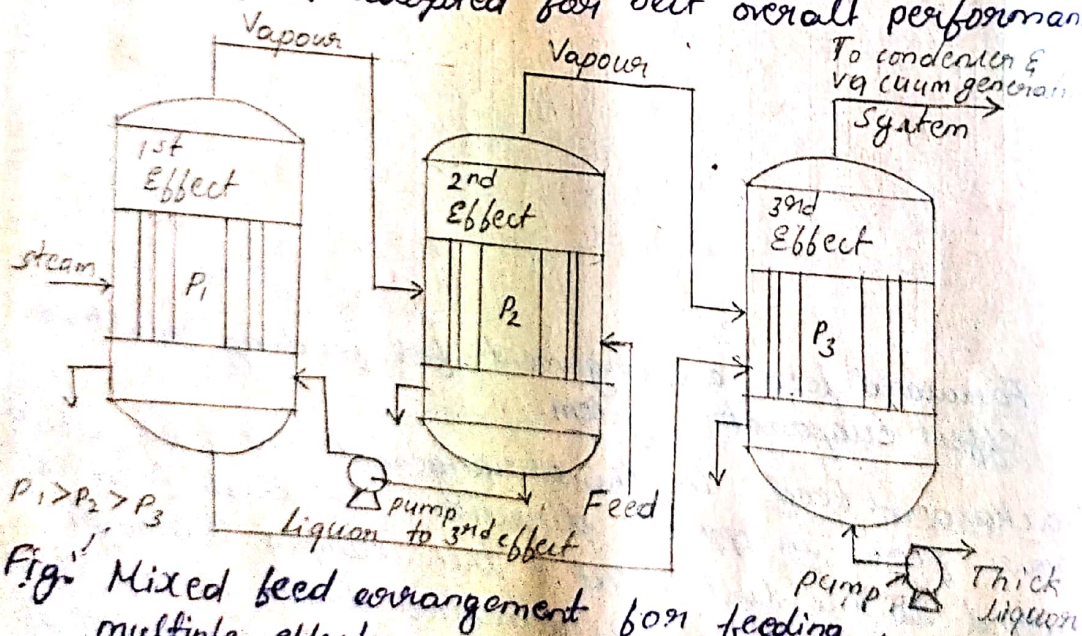 for best overall performan
Vapour
Vapour
To condenser &
vacuum generati
System
1st
Effect
2nd
Effect
3rd
Effect
steam
P1
P2
P3
P1>P2>P3
pump
Feed
Liquor to 3rd effect
pump
Thick
Liquor
Fig: Mixed feed arrangement for feeding
multiple